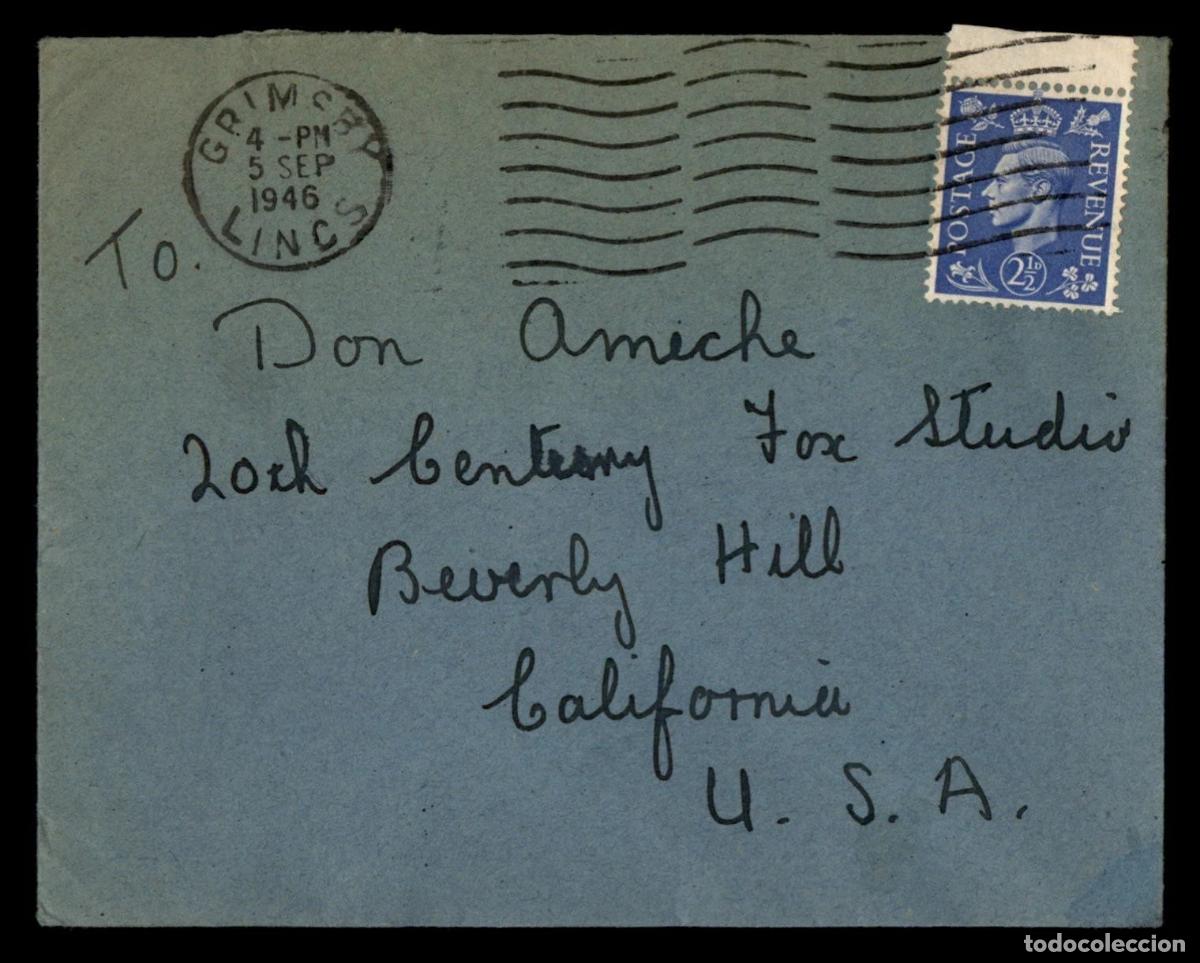 GRIMSBY
4 - PM
5 SEP
1946
LINCS
POSTAGE
REVENUE
2½D
To.
Don Ameche
20th Century Fox Studio
Beverly Hill
California
U. S. A.
todocoleccion